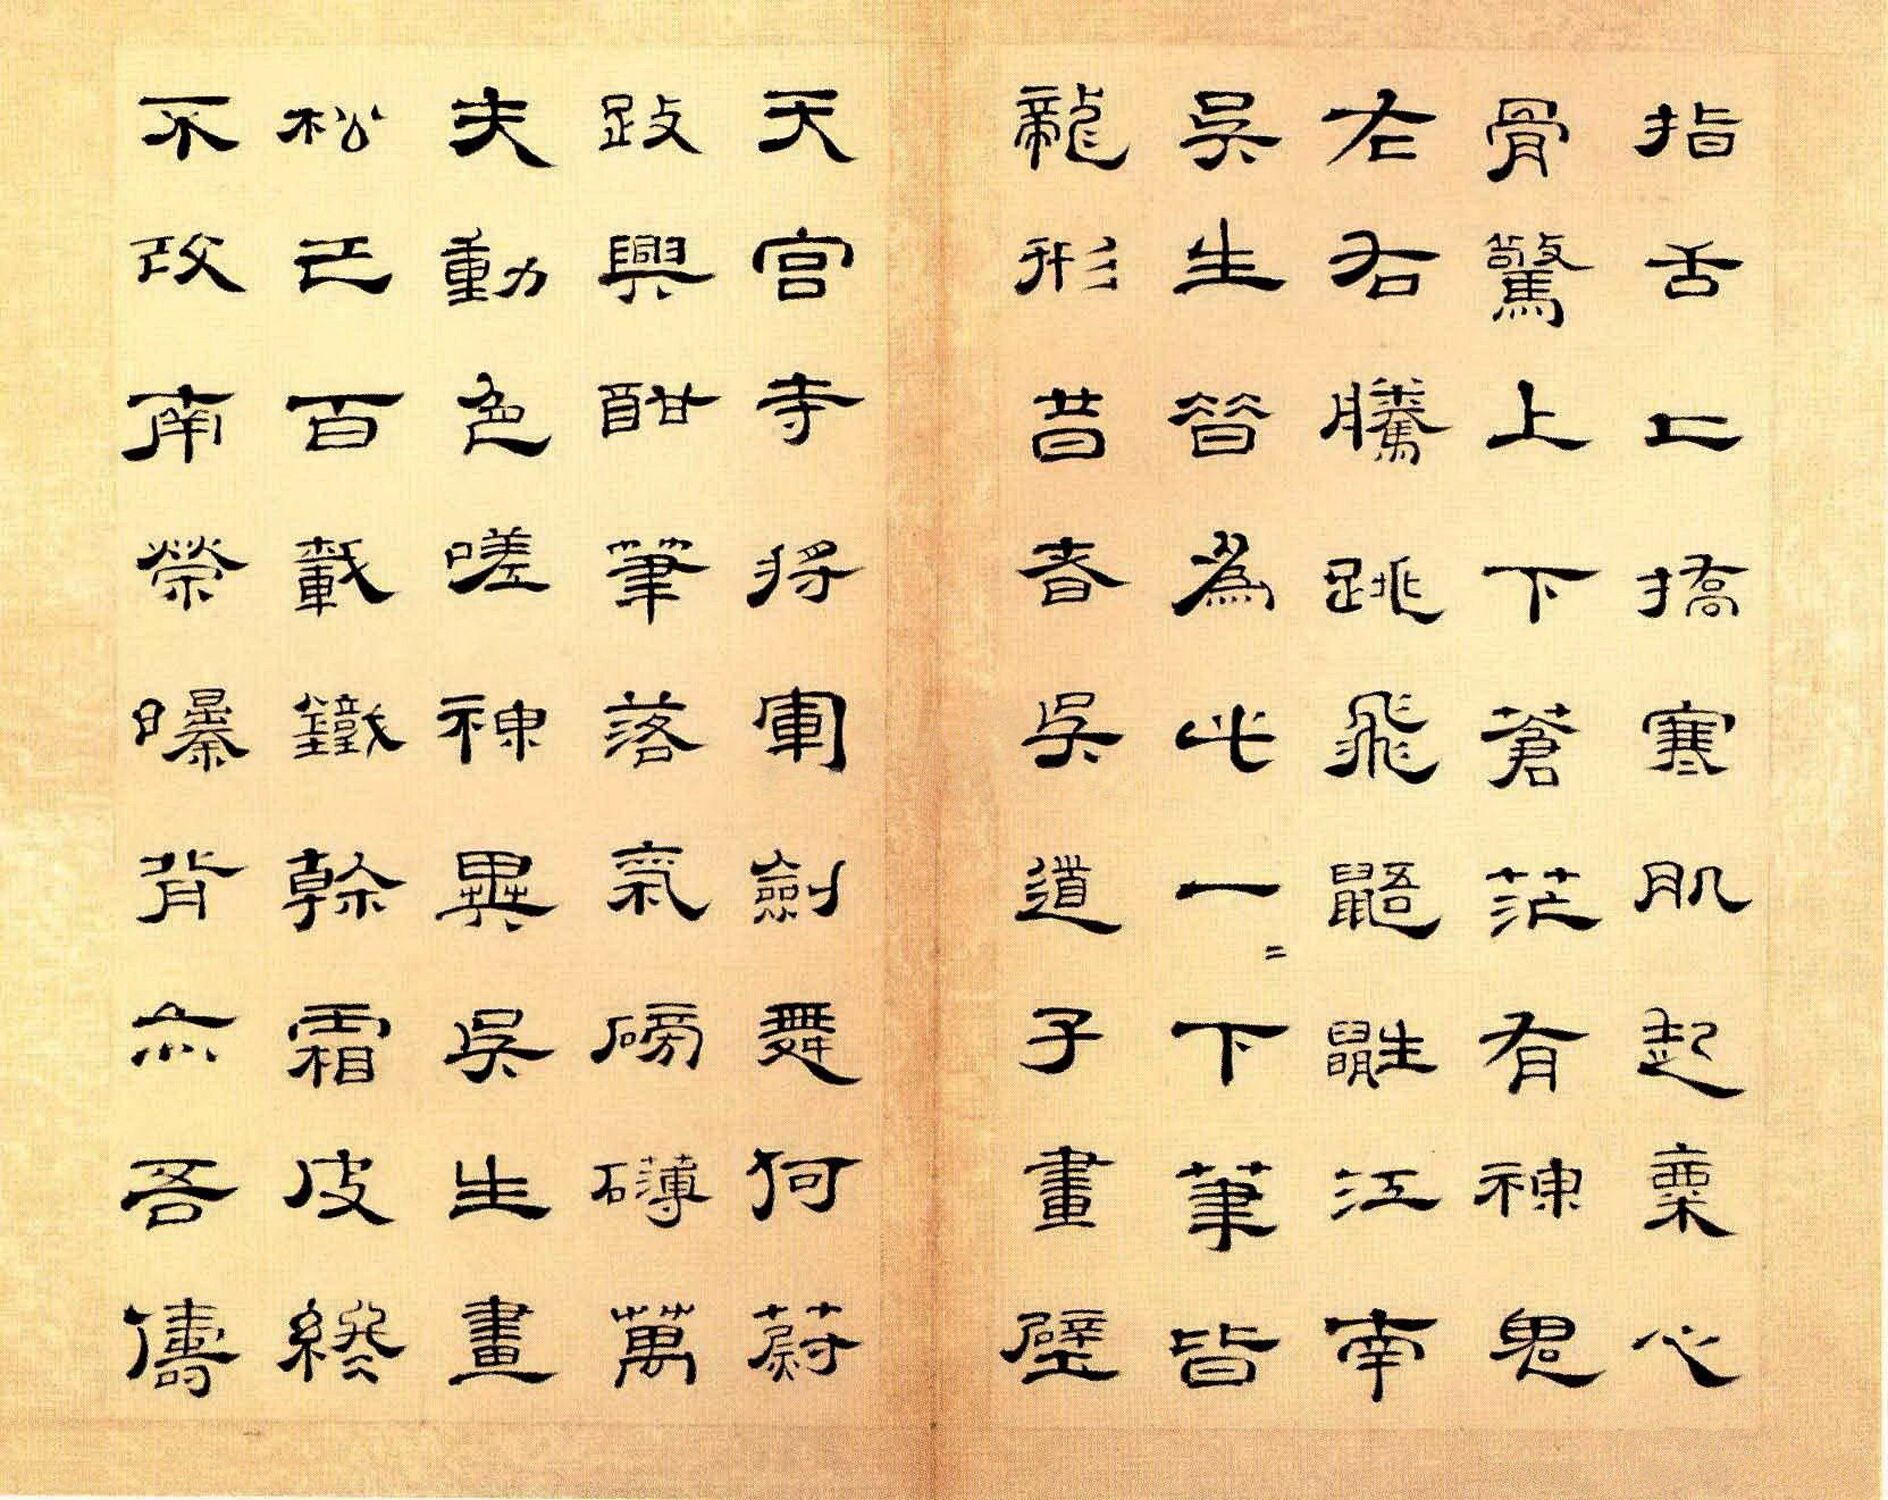 指舌上撟寒肌起粟心
骨驚上下蒼茫有神鬼
左右騰跳飛鼯鼪江南
吳生替為此一〻下筆皆
龍形昔者吳道子畫壁
天宮寺將軍劍舞何蔚
跂興酣筆落氣磅礴萬
夫動色嗟神異吳生畫
松已百載鐵榦霜皮終
不改南榮曝背亦吾儔